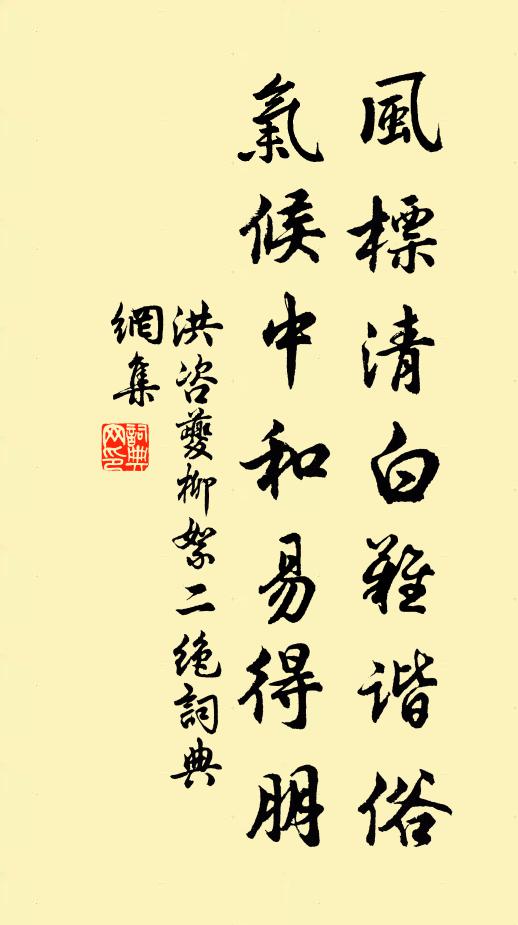 風標清白難諧俗
氣候中和易得朋
洪咨夔柳絮二絶詞典
網集
詞典
网印